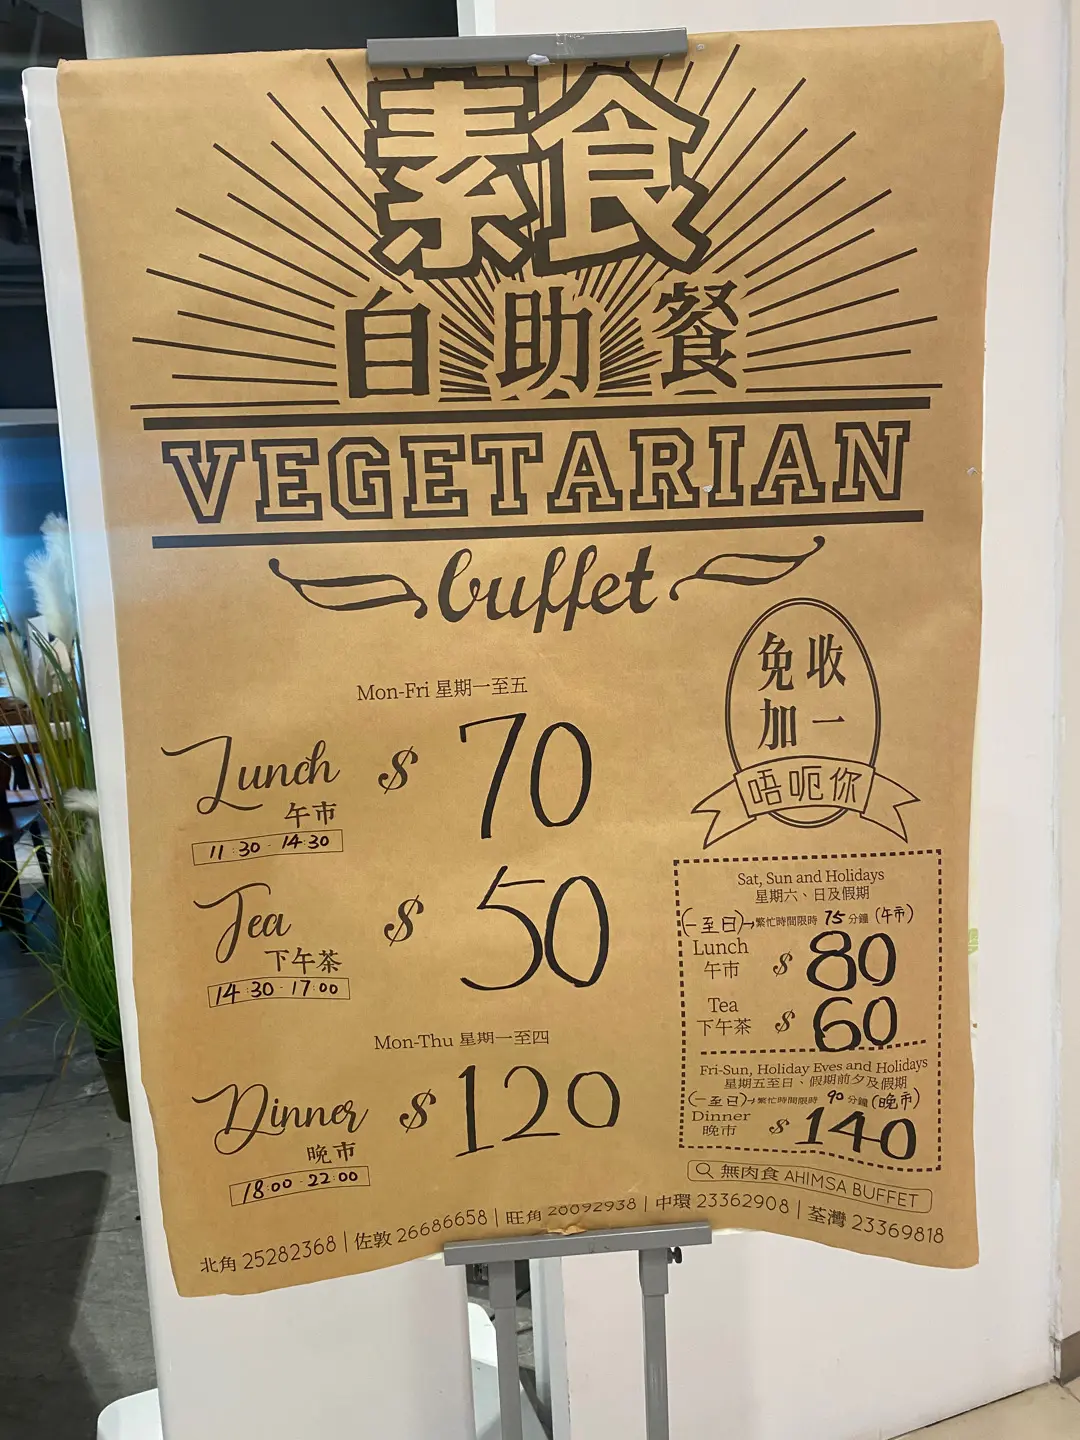 素食
自助餐
VEGETARIAN
buffet
免收
加一
唔呃你
Mon-Fri 星期一至五
Lunch $ 70
午市
11:30 - 14:30
Tea $ 50
下午茶
14:30 - 17:00
Mon-Thu 星期一至四
Dinner $ 120
晚市
18:00 - 22:00
Sat, Sun and Holidays
星期六、日及假期
(一至日)→繁忙時間限時 75 分鐘 (午市)
Lunch
午市 $ 80
Tea
下午茶 $ 60
Fri-Sun, Holiday Eves and Holidays
星期五至日、假期前夕及假期
(一至日)→繁忙時間限時 90 分鐘 (晚市)
Dinner
晚市 $ 140
無肉食 AHIMSA BUFFET
北角 25282368 | 佐敦 26686658 | 旺角 | 中環 23362908 | 荃灣 23369818